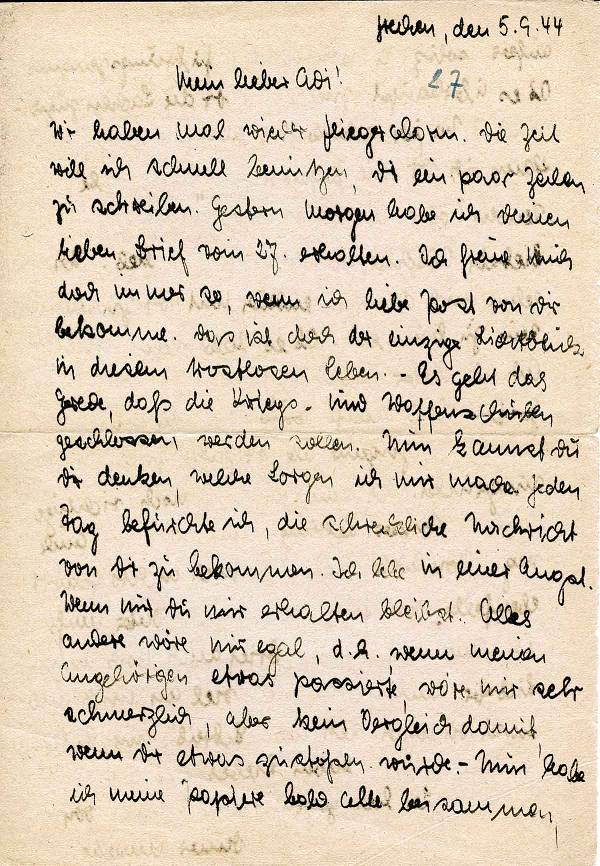 Frechen, den 5.9.44
27
Mein lieber Adi!
Wir haben mal wieder Fliegeralarm. Die Zeit
will ich schnell benützen, dir ein paar Zeilen
zu schreiben. Gestern Morgen habe ich deinen
lieben Brief vom 27. erhalten. Ich freue mich
doch immer so, wenn ich liebe Post von dir
bekomme. Das ist doch der einzige Lichtblick
in diesem trostlosen Leben. - Es geht das
Gerede, daß die Kriegs- und Waffenschulen
geschlossen werden sollen. Nun kannst du
dir denken, welche Sorgen ich mir mache. Jeden
Tag befürchte ich, die schreckliche Nachricht
von dir zu bekommen. Ich lebe in einer Angst.
Wenn nur du mir erhalten bleibst. Alles
andere wäre mir egal, d.h. wenn meinen
Angehörigen etwas passierte, wäre mir sehr
schmerzlich, aber kein Vergleich damit,
wenn dir etwas zustoßen würde. - Nun habe
ich meine Papiere bald alle beisammen,